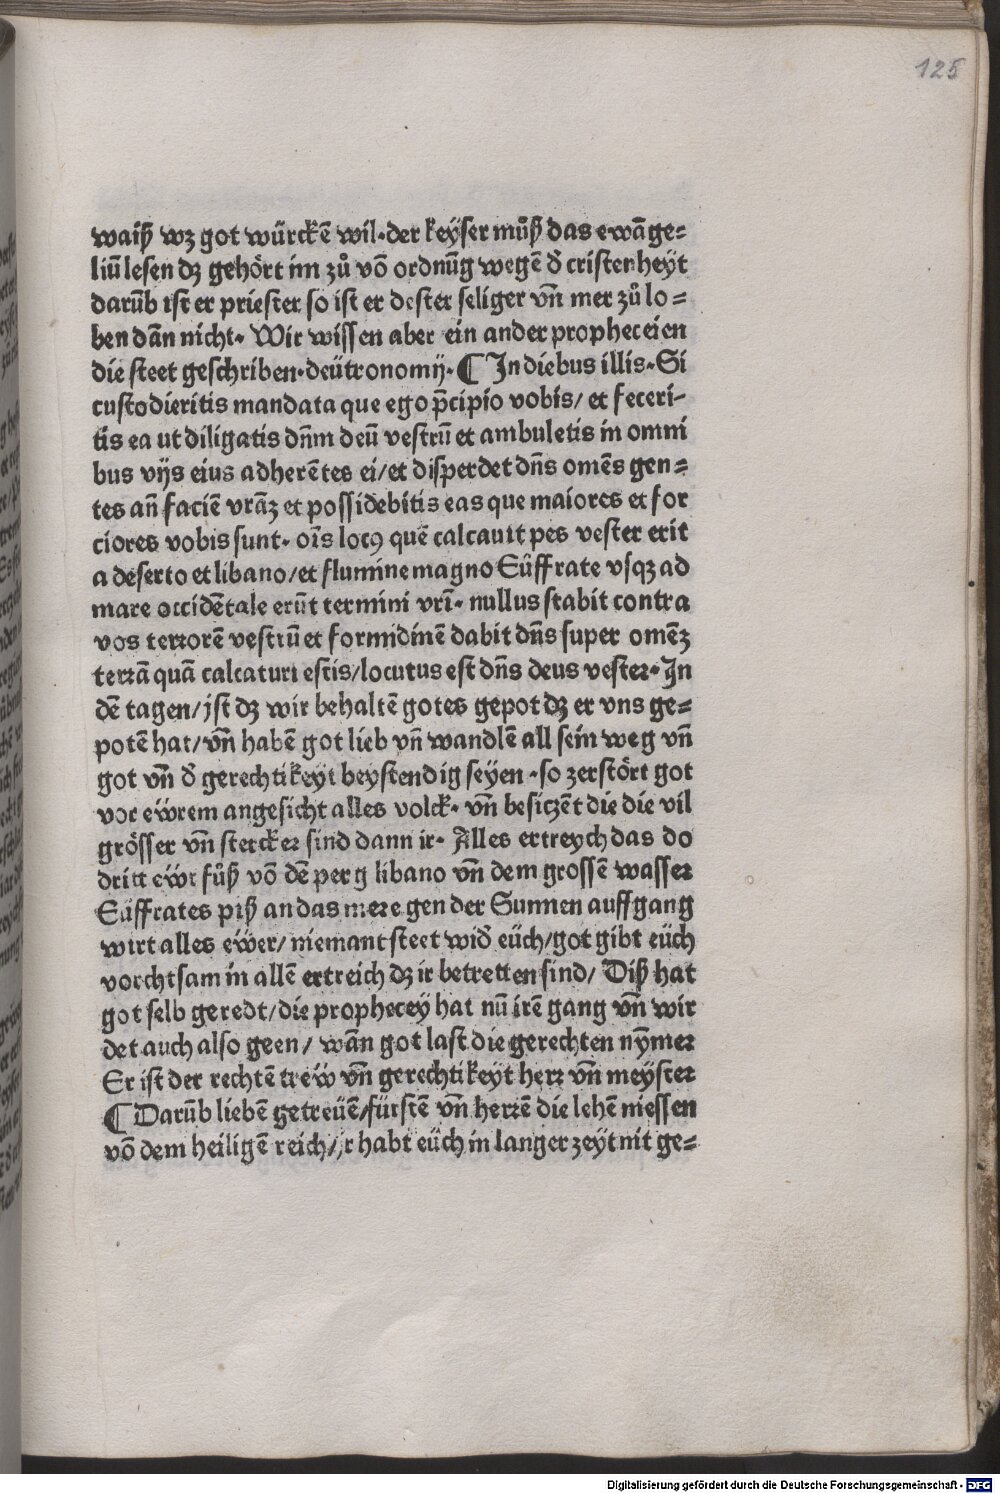 125
waiß wz got würckē wil· der keyser můß das ewāge⸗
liū lesen dz gehört im zů vō ordnūg wegē đ cristenheyt
darūb ist er priester so ist er dester seliger vn̄ mer zů lo⸗
ben dān nicht· Wir wissen aber ein ander propheceien
die steet geschriben· deütronomij· ¶ In diebus illis· Si
custodieritis mandata que ego p̄cipio vobis/ et feceri⸗
tis ea ut diligatis dn̄m deū vestrū et ambuletis in omni
bus vijs eius adherētes ei/ et disperdet dn̄s omēs gen⸗
tes an̄ faciē vrāz et possidebitis eas que maiores et for
ciores vobis sunt· oīs locꝰ quē calcauit pes vester erit
a deserto et libano/ et flumine magno Eüffrate vsqꝫ ad
mare occidētale erūt termini vrī· nullus stabit contra
vos terrorē vestrū et formidinē dabit dn̄s super omēz
terrā quā calcaturi estis/ locutus est dn̄s deus vester· In
dē tagen/ ist dz wir behaltē gotes gepot dz er vns ge⸗
potē hat/ vn̄ habē got lieb vn̄ wandlē all sein weg vn̄
got vn̄ đ gerechtikeyt beystendig seyen· so zerstört got
vor ewrem angesicht alles volck· vn̄ besiczēt die die vil
grösser vn̄ stercker sind dann ir· Alles ertreych das do
dritt ewr fůß vō dē perg libano vn̄ dem grossē wasser
Eüffrates piß an das mere gen der Sunnen auffgang
wirt alles ewer/ niemant steet wiđ eüch/ got gibt eüch
vorchtsam in allē ertreich dz ir betretten sind/ Diß hat
got selb geredt/ die prophecey hat nū irē gang vn̄ wir
det auch also geen/ wān got last die gerechten nymer
Er ist der rechtē trew vn̄ gerechtikeyt herr vn̄ meyster
¶ Darūb liebē getreüē/ fürstē vn̄ herrē die lehē niessen
vō dem heiligē reich/ ir habt eüch in langer zeyt nit ge⸗
Digitalisierung gefördert durch die Deutsche Forschungsgemeinschaft - DFG